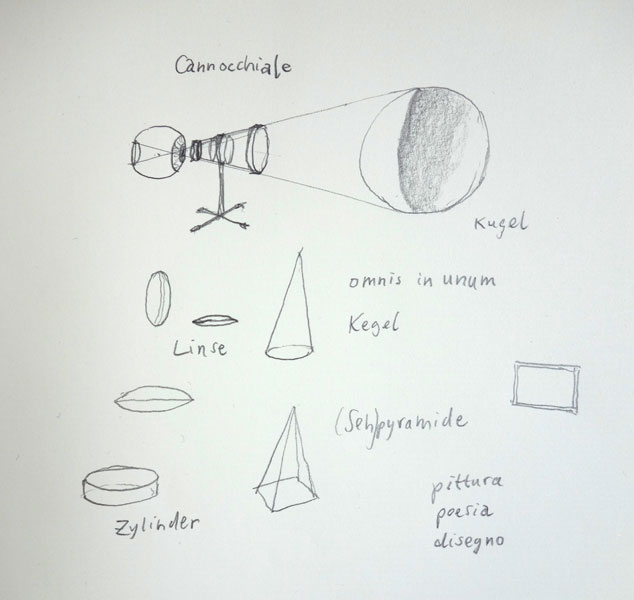 Cannocchiale
Kugel
omnis in unum
Kegel
Linse
(Seh)pyramide
pittura
poesia
disegno
Zylinder